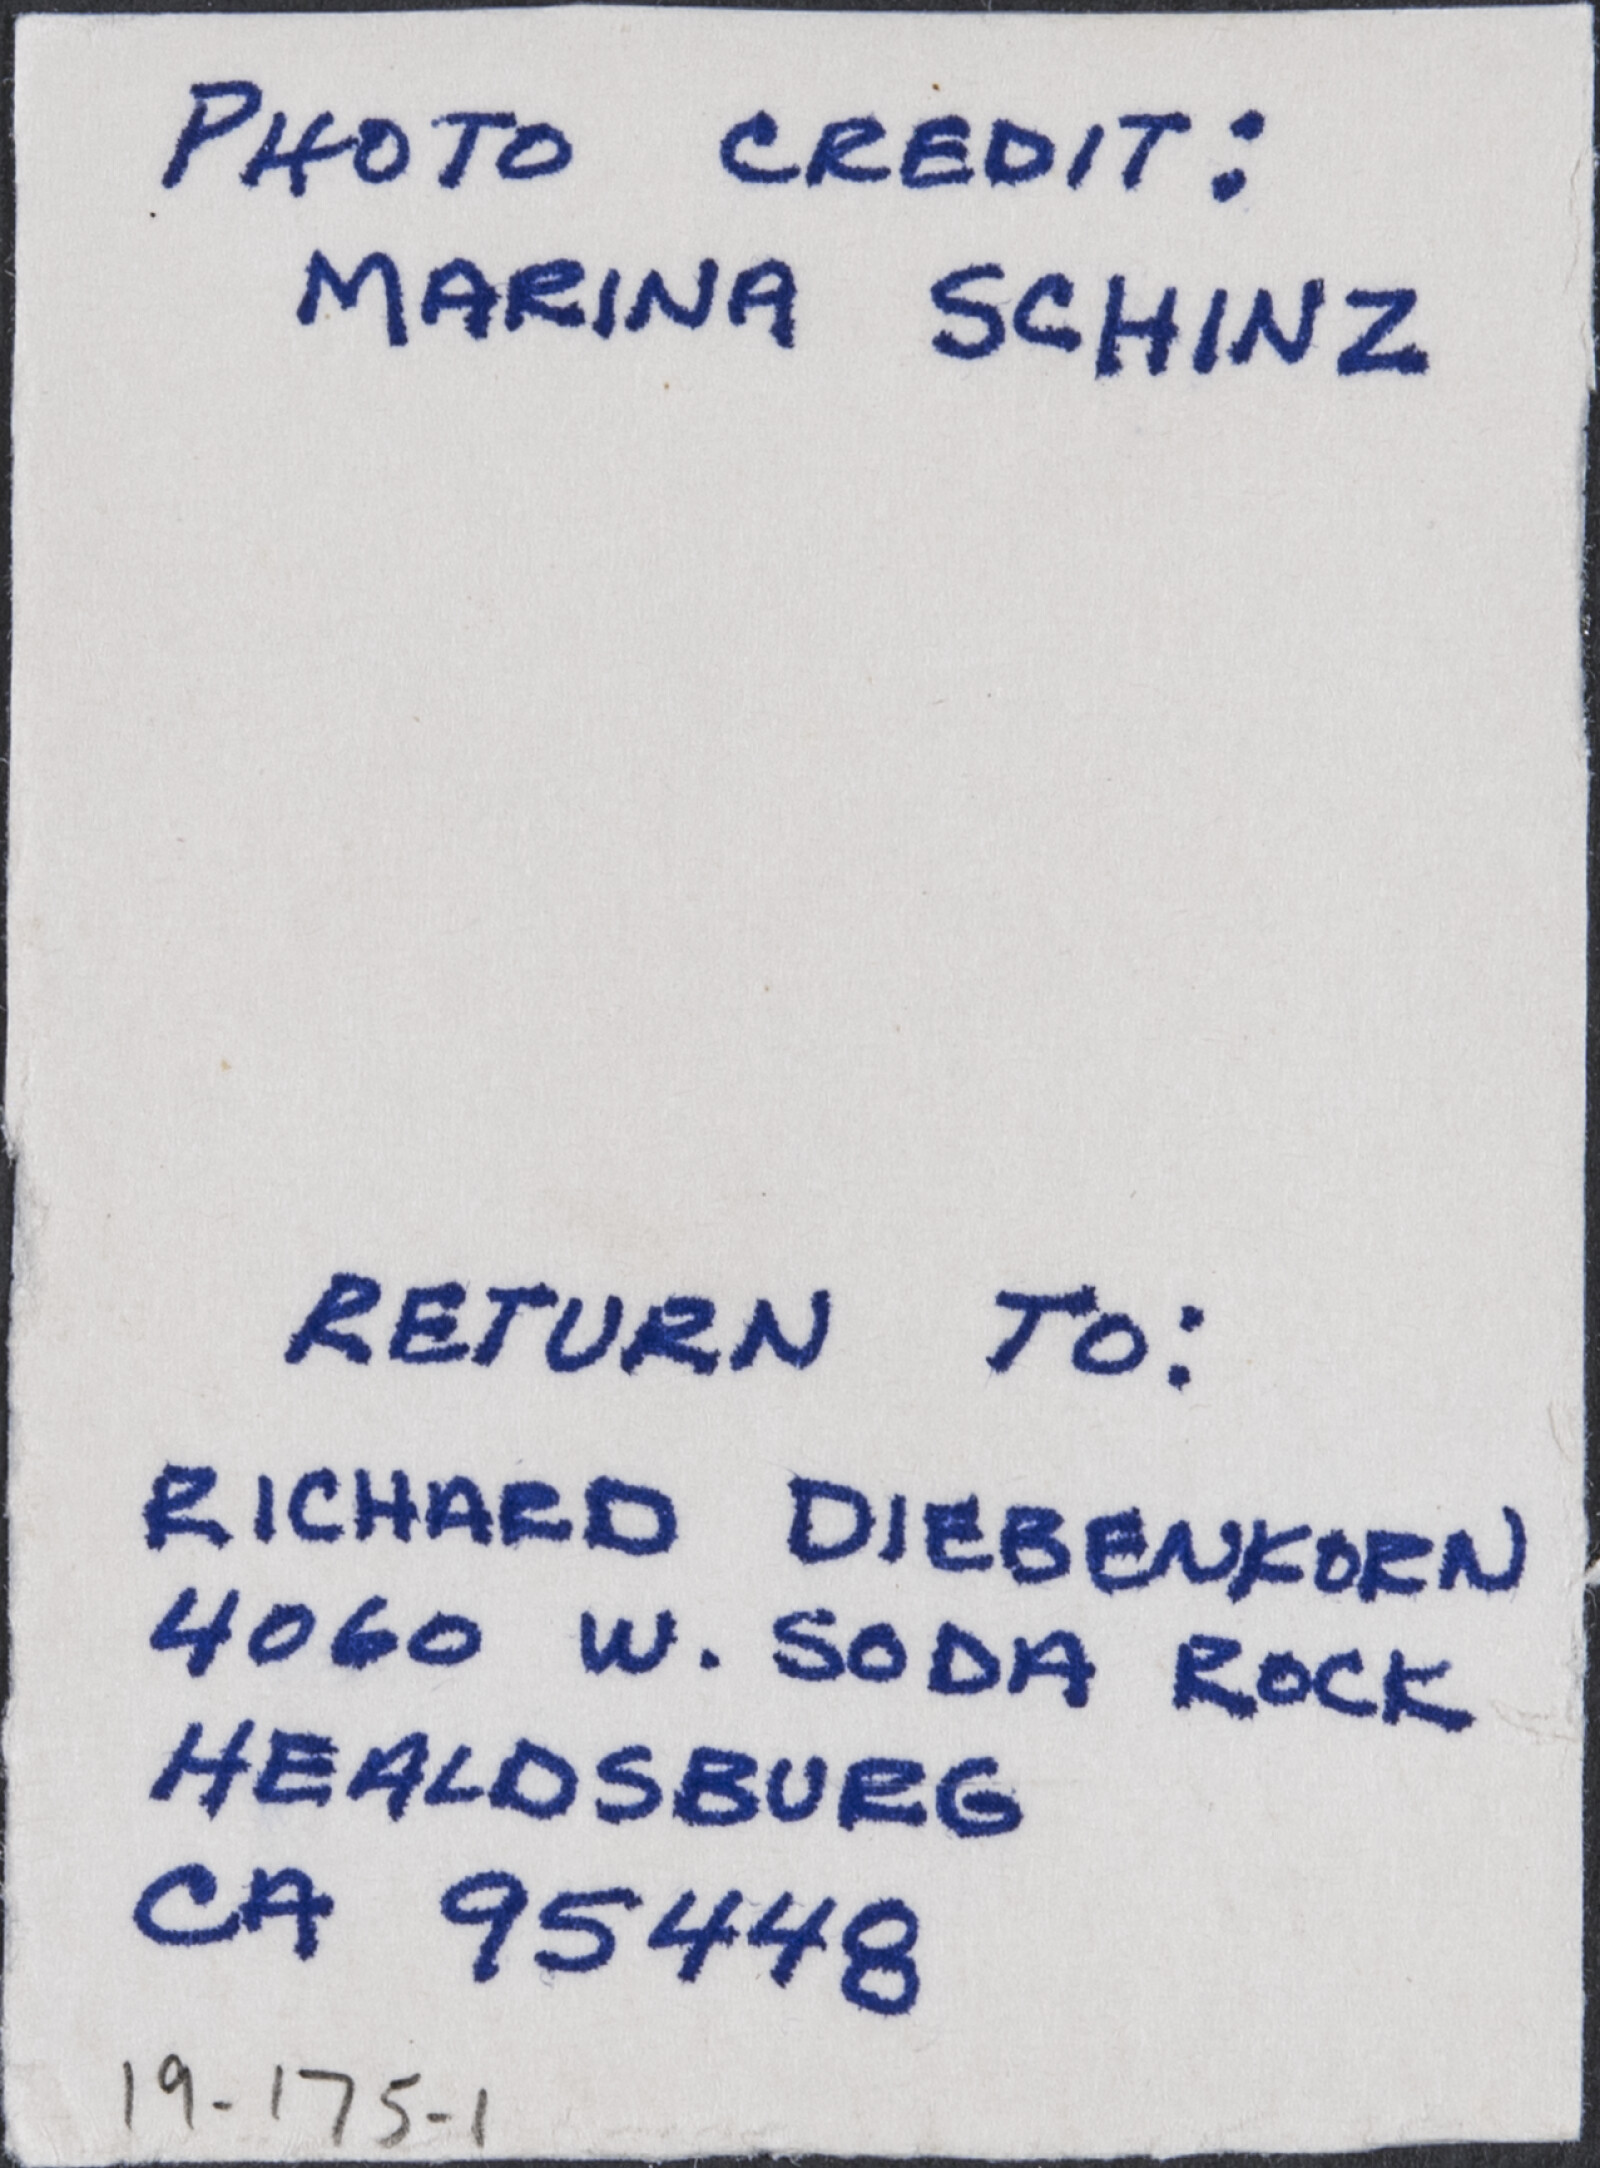 PHOTO CREDIT:
MARINA SCHINZ
RETURN TO:
RICHARD DIEBENKORN
4060 W. SODA ROCK
HEALDSBURG
CA 95448
19-175-1